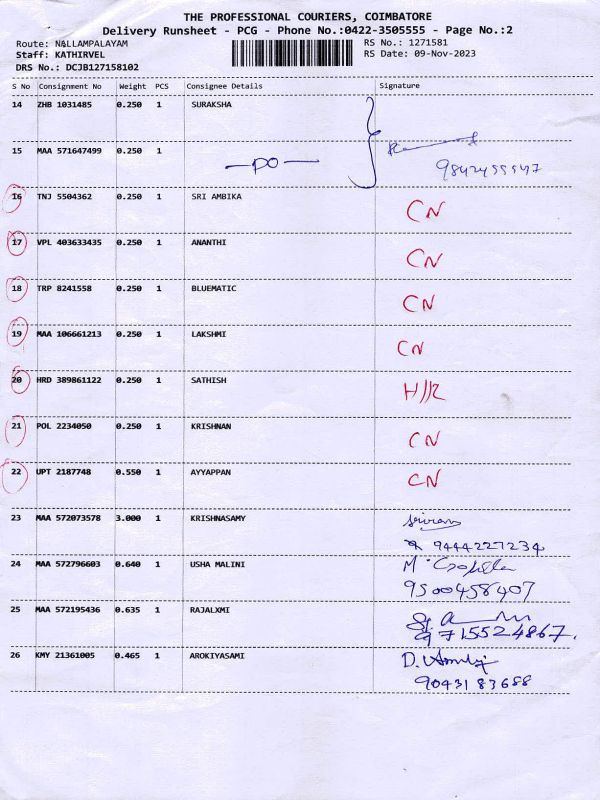 THE PROFESSIONAL COURIERS, COIMBATORE
Delivery Runsheet - PCG - Phone No.:0422-3505555 - Page No.:2
Route: NALLAMPALAYAM RS No.: 1271581
Staff: KATHIRVEL RS Date: 09-Nov-2023
DRS No.: DCJB127158102
S No Consignment No Weight PCS Consignee Details Signature
14 ZHB 1031485 0.250 1 SURAKSHA
15 MAA 571647499 0.250 1
—PO—
16 TNJ 5504362 0.250 1 SRI AMBIKA CN
17 VPL 403633435 0.250 1 ANANTHI CN
18 TRP 8241558 0.250 1 BLUEMATIC CN
19 MAA 106661213 0.250 1 LAKSHMI CN
20 HRD 389861122 0.250 1 SATHISH
21 POL 2234050 0.250 1 KRISHNAN CN
22 UPT 2187748 0.550 1 AYYAPPAN CN
23 MAA 572073578 3.000 1 KRISHNASAMY
9444227234
24 MAA 572796603 0.640 1 USHA MALINI
9500458407
25 MAA 572195436 0.635 1 RAJALXMI
9715524867.
26 KMY 21361005 0.465 1 AROKIYASAMI
9043183688